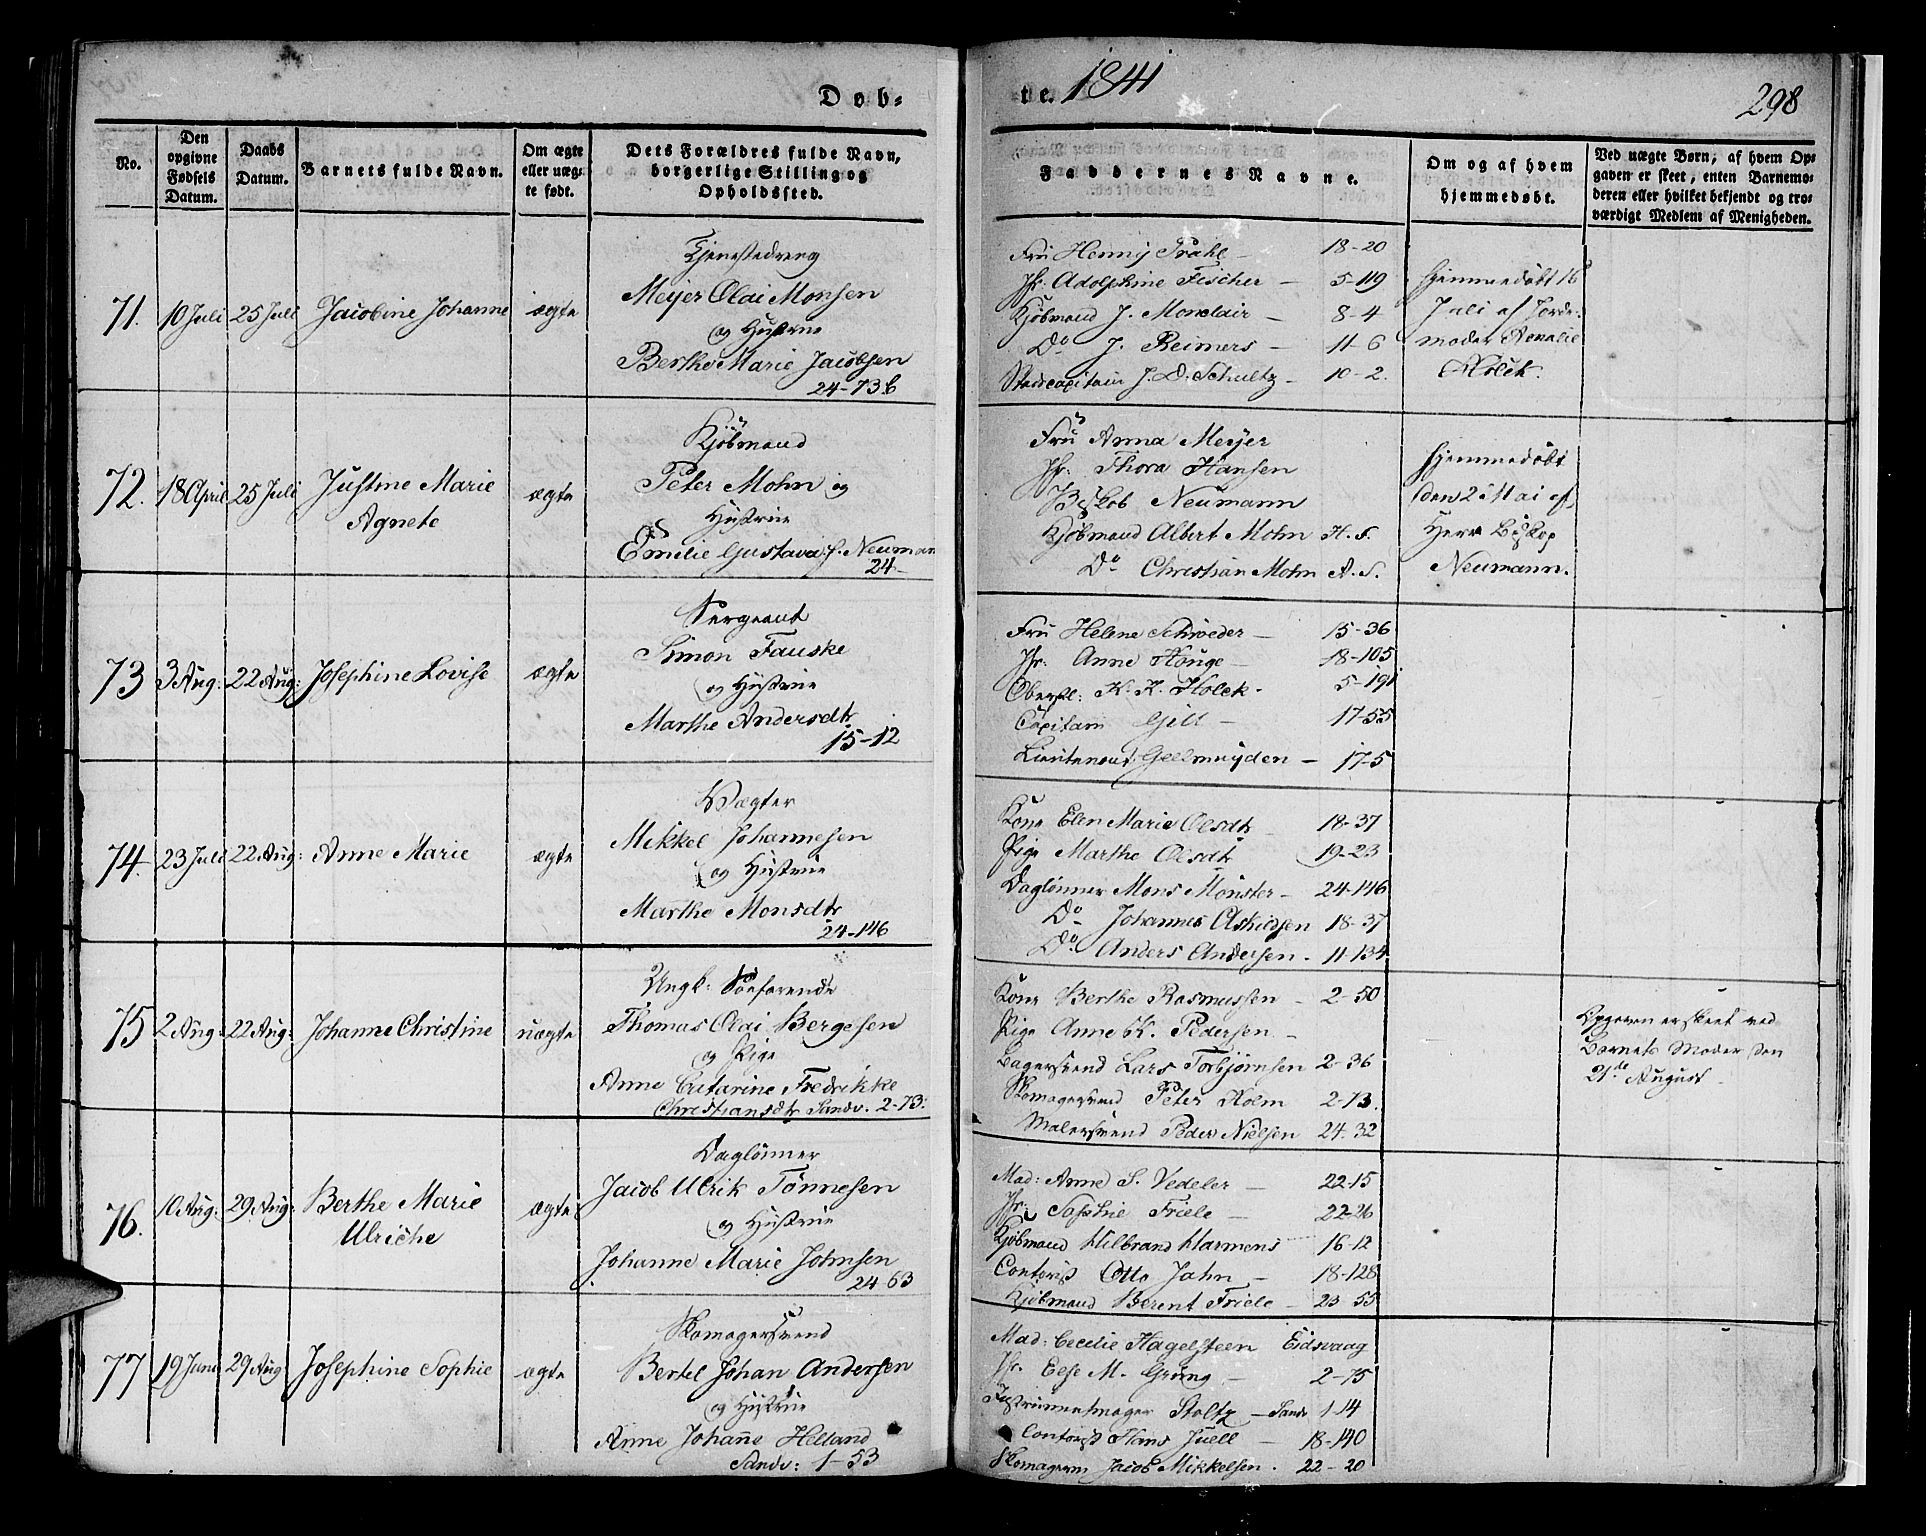 Døb-
te. 1841
298
No.
Den opgivne Fødsels Datum.
Daabs Datum.
Barnets fulde Navn.
Om ægte eller uægte født.
Dets Forældres fulde Navn, borgerlige Stilling og Opholdssted.
Faddernes Navne.
Om og af hvem hjemmedøbt.
Ved uægte Børn, af hvem Opgaven er skeet, enten Barnemoderen eller hvilket bekjendt og troværdigt Medlem af Menigheden.
71. 10 Juli 25 Juli Jacobine Johanne ægte
Tjenestedreng
Meyer Olai Monsen
og Hustrue
Berthe Marie Jacobsen
24-73 b
Fru Henny Prahl - 18-20
Jfr: Adolphine Fischer - 5-119
Kjøbmand J. Monclair - 8-4
Do J. Reimers - 11-6
Stadscapitain J. D. Schultz - 10-2.
Hjemmedøbt 16
Juli af Jorde-
moder Amalie
Holck.
72. 18 April 25 Juli Justine Marie
Agnete
ægte
Kjøbmand
Peter Mohn og
Hustrue
Emilie Gustava f. Neuman
24-
Fru Anna Meyer
Jfr: Thora Hansen
Biskob Neumann
Kjøbmand Albert Mohn H. S.
Do Christian Mohn A. S.
Hjemmedøbt
den 2 Mai af
Herr Biskop
Neumann.
73 3 Aug: 22 Aug: Josephine Lovise ægte
Sergeant
Simon Fauske
og Hustrue
Marthe Andersdtr
15-12
Fru Helene Schrøder - 15-36
Jfr: Anne Houge - 18-105
Oberstl: K. K. Holck - 5-191
Capitain Gill - 17-55
Lieutenant Geelmuyden - 17-5
74. 23 Juli 22 Aug: Anne Marie ægte
Vægter
Mikkel Johannesen
og Hustrue
Marthe Monsdtr
24-146
Kone Elen Marie Olsdtr 18-37
Pige Marthe Olsdtr 19-23
Daglønner Mons Mønster - 24-146
Do Johannes Askildsen 18-37
Do Anders Andersen - 11-134
75 2 Aug: 22 Aug: Johanne Christine uægte
Ungk: Søefarende
Thomas Olai Bergesen
og Pige
Anne Catarine Fredrikke
Christiansdtr Sandv. 2-73.
Kone Berthe Rasmussen - 2-50
Pige Anne K. Pedersen -
Bagersvend Lars Torbjørnsen 2-36
Skomagersvend Peter Holm 2-73.
Malersvend Peder Nielsen 24-32
Opgaven er skeet ved
Barnets Moder den
21de August
76. 10 Aug: 29 Aug: Berthe Marie
Ulriche
ægte
Daglønner
Jacob Ulrik Tønnesen
og Hustrue
Johanne Marie Johnsen
24-63
Mad: Anne S. Vedeler - 22-15
Jfr: Sophie Friele - 22-26
Kjøbmand Hilbrand Harmens 16-12
Contorist Otto Jahn - 18-128
Kjøbmand Berent Friele - 23-55
77 19 Juni 29 Aug Josephine Sophie ægte
Skomagersvend
Bertel Johan Andersen
og Hustrue
Anne Johanne Helland
Sandv: 1-53
Mad: Cecilie Hagelsteen Eidsvaag
Jfr. Else M. Grøng - 2-75
Instrumentmager Stoltz - Sandv 1-14
Contorist Hans Juell - 18-140
Skomagersv Jacob Mikkelsen. 22-20